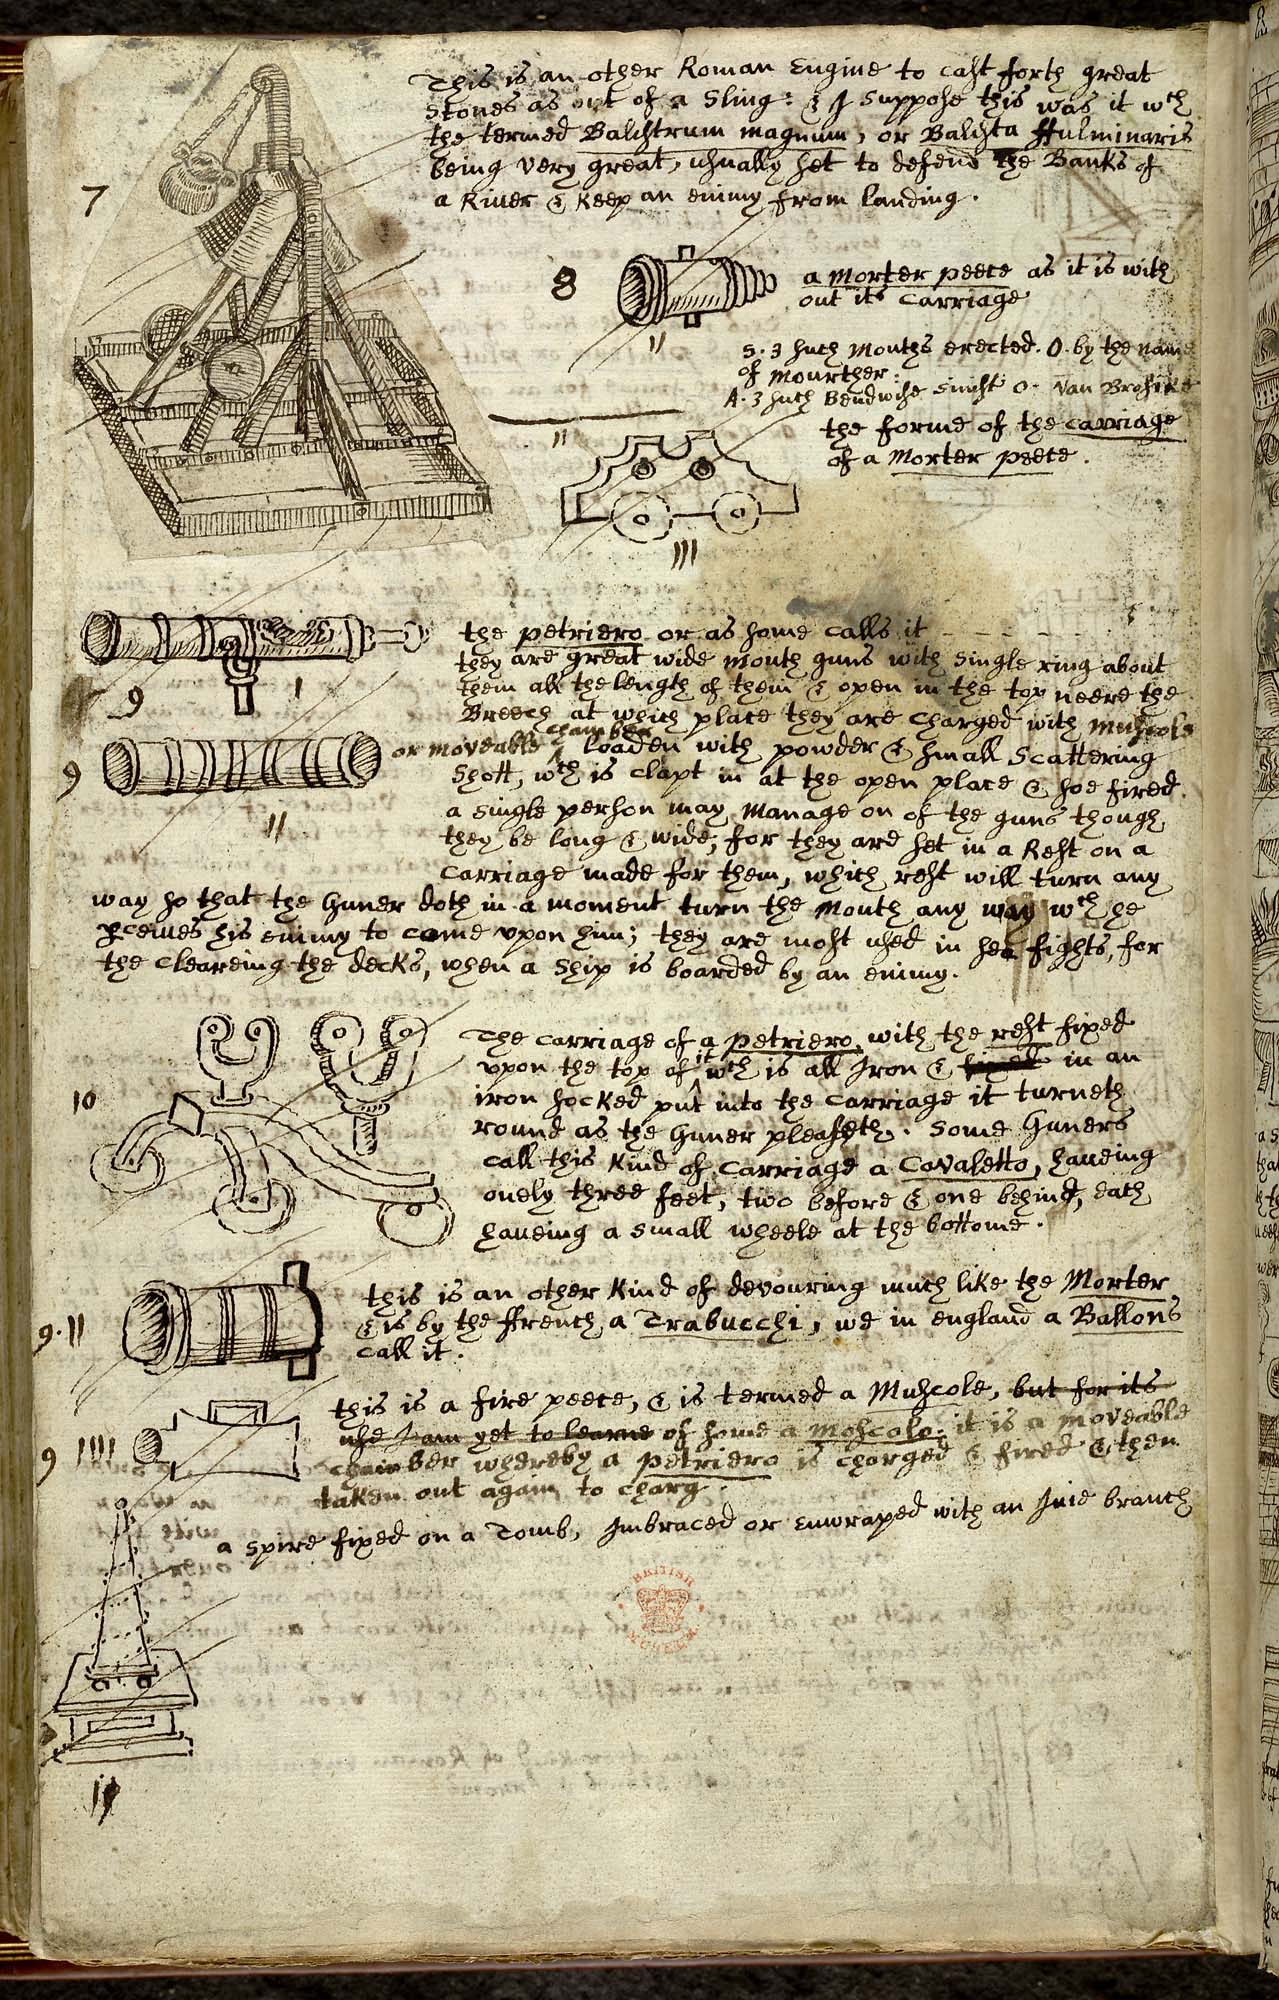 7
This is an other Roman Engine to cast forth great
Stones as out of a Sling: & I suppose this was it wch
the termed Balistrum magnum, or Balista ffulminaris
being very great, usually set to defend the Banks of
a River & keep an enimy from landing.
8
a Morter peece as it is with
out its Carriage
11
S. 3 such Mouths erected. O. by the name
of Mourther.
A. 3 such Bendwise O. Van
11
the forme of the carriage
of a Morter peece.
111
the petriero or as some calls it - - - - - -
they are great wide mouth guns with single ring about
them all the length of them & open in the top neere the
Breech at which place they are charged with Muscols
or moveable chamber loaden with powder & small Scattering
Shott, wch is clapt in at the open place & soe fired
a single person may Manage on of the guns though
they be long & wide, for they are set in a Rest on a
Carriage made for them, which rest will turn any
way so that the Guner doth in a moment turn the Mouth any way wch he
Pceives his enimy to come upon him; they are most used in sea fights, for
the cleareing the decks, when a Ship is boarded by an enimy.
9 1
9
11
10
The Carriage of a petriero, with the rest fixed
upon the top of it wch is all Iron & fixed in an
iron socked put into the Carriage it turneth
round as the Guner pleaseth. Some Guners
call this kind of Carriage a Cavaletto, haveing
onely three feet, two before & one behind, each
haveing a small wheele at the bottome.
9.11
this is an other kind of devouring much like the Morter
& is by the ffrench a Trabucchi, we in england a Ballons
call it.
9 1111
this is a fire peece, & is termed a Muscole, but for its
use I am yet to learne of some a Moscolo. it is a moveable
chamber whereby a petriero is charged & fired & then
taken out again to charg.
a spire fixed on a Tomb, Imbraced or enwraped with an Ivie branch
BRITISH
MUSEUM